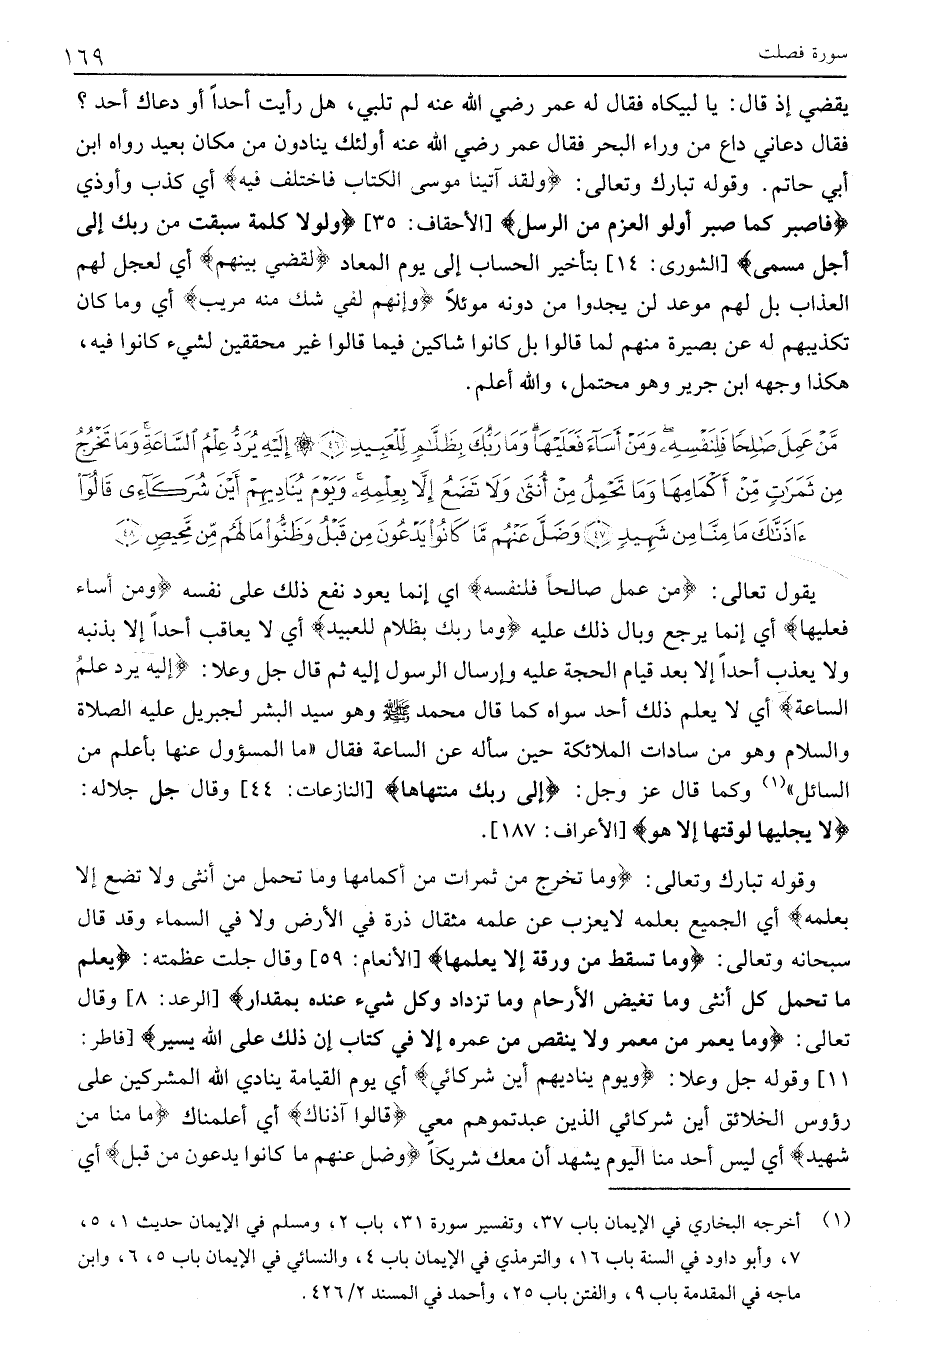 سورة فصلت ١٦٩
يقضي إذ قال: يا لبيكاه فقال له عمر رضي الله عنه لم تلبي، هل رأيت أحداً أو دعاك أحد ؟
فقال دعاني داع من وراء البحر فقال عمر رضي الله عنه أولئك ينادون من مكان بعيد رواه ابن
أبي حاتم. وقوله تبارك وتعالى: ﴿ولقد آتينا موسى الكتاب فاختلف فيه﴾ أي كذب وأوذي
﴿فاصبر كما صبر أولو العزم من الرسل﴾ [الأحقاف: ٣٥] ﴿ولولا كلمة سبقت من ربك إلى
أجل مسمى﴾ [الشورى: ١٤] بتأخير الحساب إلى يوم المعاد ﴿لقضي بينهم﴾ أي لعجل لهم
العذاب بل لهم موعد لن يجدوا من دونه موئلاً ﴿وإنهم لفي شك منه مريب﴾ أي وما كان
تكذيبهم له عن بصيرة منهم لما قالوا بل كانوا شاكين فيما قالوا غير محققين لشيء كانوا فيه،
هكذا وجهه ابن جرير وهو محتمل، والله أعلم.
مَّنْ عَمِلَ صَٰلِحًا فَلِنَفْسِهِۦ وَمَنْ أَسَآءَ فَعَلَيْهَا وَمَا رَبُّكَ بِظَلَّٰمٍ لِّلْعَبِيدِ ﴿٤٦﴾ ۞ إِلَيْهِ يُرَدُّ عِلْمُ ٱلسَّاعَةِ وَمَا تَخْرُجُ
مِن ثَمَرَٰتٍ مِّنْ أَكْمَامِهَا وَمَا تَحْمِلُ مِنْ أُنثَىٰ وَلَا تَضَعُ إِلَّا بِعِلْمِهِۦ وَيَوْمَ يُنَادِيهِمْ أَيْنَ شُرَكَآءِى قَالُوٓا۟
ءَاذَنَّٰكَ مَا مِنَّا مِن شَهِيدٍ ﴿٤٧﴾ وَضَلَّ عَنْهُم مَّا كَانُوا۟ يَدْعُونَ مِن قَبْلُ وَظَنُّوا۟ مَا لَهُم مِّن مَّحِيصٍ ﴿٤٨﴾
يقول تعالى: ﴿من عمل صالحاً فلنفسه﴾ اي إنما يعود نفع ذلك على نفسه ﴿ومن أساء
فعليها﴾ أي إنما يرجع وبال ذلك عليه ﴿وما ربك بظلام للعبيد﴾ أي لا يعاقب أحداً إلا بذنبه
ولا يعذب أحداً إلا بعد قيام الحجة عليه وإرسال الرسول إليه ثم قال جل وعلا: ﴿إليه يرد علمُ
الساعة﴾ أي لا يعلم ذلك أحد سواه كما قال محمد ﷺ وهو سيد البشر لجبريل عليه الصلاة
والسلام وهو من سادات الملائكة حين سأله عن الساعة فقال «ما المسؤول عنها بأعلم من
السائل»(١) وكما قال عز وجل: ﴿إلى ربك منتهاها﴾ [النازعات: ٤٤] وقال جل جلاله:
﴿لا يجليها لوقتها إلا هو﴾ [الأعراف: ١٨٧].
وقوله تبارك وتعالى: ﴿وما تخرج من ثمرات من أكمامها وما تحمل من أنثى ولا تضع إلا
بعلمه﴾ أي الجميع بعلمه لايعزب عن علمه مثقال ذرة في الأرض ولا في السماء وقد قال
سبحانه وتعالى: ﴿وما تسقط من ورقة إلا يعلمها﴾ [الأنعام: ٥٩] وقال جلت عظمته: ﴿يعلم
ما تحمل كل أنثى وما تغيض الأرحام وما تزداد وكل شيء عنده بمقدار﴾ [الرعد: ٨] وقال
تعالى: ﴿وما يعمر من معمر ولا ينقص من عمره إلا في كتاب إن ذلك على الله يسير﴾ [فاطر:
١١] وقوله جل وعلا: ﴿ويوم يناديهم أين شركائي﴾ أي يوم القيامة ينادي الله المشركين على
رؤوس الخلائق أين شركائي الذين عبدتموهم معي ﴿قالوا آذناك﴾ أي أعلمناك ﴿ما منا من
شهيد﴾ أي ليس أحد منا اليوم يشهد أن معك شريكاً ﴿وضل عنهم ما كانوا يدعون من قبل﴾ أي
(١) أخرجه البخاري في الإيمان باب ٣٧، وتفسير سورة ٣١، باب ٢، ومسلم في الإيمان حديث ١، ٥،
٧، وأبو داود في السنة باب ١٦، والترمذي في الإيمان باب ٤، والنسائي في الإيمان باب ٥، ٦، وابن
ماجه في المقدمة باب ٩، والفتن باب ٢٥، وأحمد في المسند ٢/ ٤٢٦.